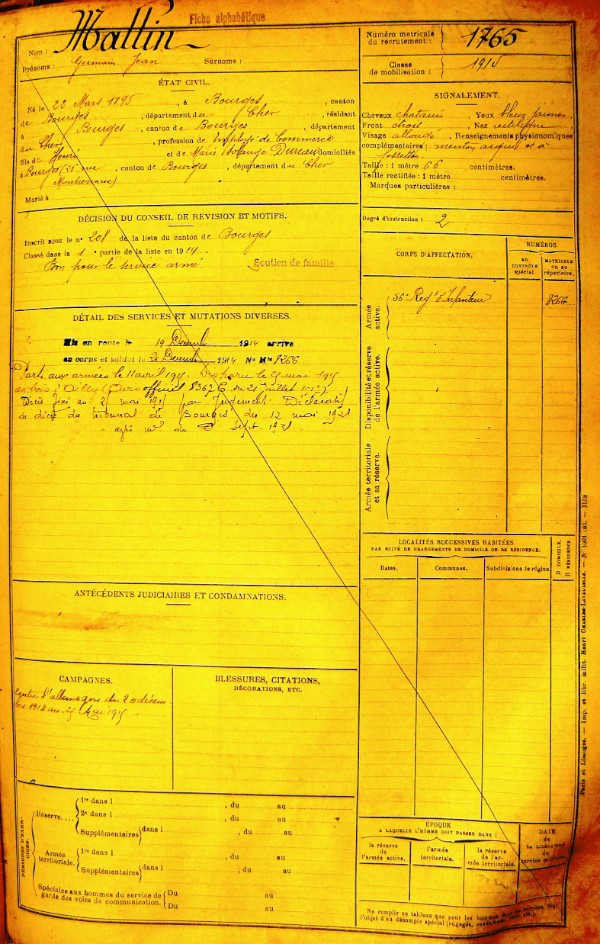 Fiche alphabétique
Nom : Mallin
Prénoms : Germain Jean Surnoms :
Numéro matricule du recrutement : 1765
Classe de mobilisation : 1915
ÉTAT CIVIL.
Né le 22 Mars 1895, à Bourges, canton
de Bourges, département du Cher, résidant
à Bourges, canton de Bourges, département
du Cher, profession de Employé de Commerce
fils de Henri et de Marie Solange domiciliés
à Bourges, canton de Bourges, département du Cher
Marié à
SIGNALEMENT.
Cheveux chatains Yeux bleu jaunes
Front droit, Nez rectiligne
Visage allongé, Renseignements physionomiques
complémentaires : menton
fossettes
Taille : 1 mètre 66 centimètres.
Taille rectifiée : 1 mètre centimètres.
Marques particulières :
DÉCISION DU CONSEIL DE RÉVISION ET MOTIFS.
Inscrit sous le n° 208 de la liste du canton de Bourges
Classé dans la 1 partie de la liste en 1914
Bon pour le service armé Soutien de famille
Degré d'instruction : 2
DÉTAIL DES SERVICES ET MUTATIONS DIVERSES.
Mis en route le 19 Décembre 1914 arrivé
au corps et soldat le 20 Décembre 1914 N° Mle 8266
Parti aux armées le 11 avril 1915. Disparu le 29 mai 1915
au bois d'Ailly (
Décès fixé au 29 mai 1915 par Jugement Déclaratif
de décès du tribunal de Bourges du 12 mai 1921
Sept 1921
CORPS D'AFFECTATION.
NUMÉROS
AU CONTRÔLE spécial.
MATRICULE ou au répertoire.
Armée active.
56e Regt d'Infanterie 8266
Disponibilité et réserve de l'armée active.
Armée territoriale et sa réserve.
LOCALITÉS SUCCESSIVES HABITÉES
PAR SUITE DE CHANGEMENTS DE DOMICILE OU DE RÉSIDENCE.
Dates. Communes. Subdivisions de région
D. DOMICILE.
R. RÉSIDENCE
ANTÉCÉDENTS JUDICIAIRES ET CONDAMNATIONS.
CAMPAGNES.
Contre l'allemagne du 20 décem
bre 1914 au 29 Mai 1915
BLESSURES, CITATIONS,
DÉCORATIONS, ETC.
Réserve....
1re dans l , du au
2e dans l , du au
Supplémentaires dans l , du au
Armée territoriale.
1re dans l , du au
Supplémentaires dans l , du au
Spéciales aux hommes du service de garde des voies de communication.
Du au
Du au
ÉPOQUE
A LAQUELLE L'HOMME DOIT PASSER DANS :
la réserve de l'armée active.
l'armée territoriale.
la réserve de l'armée territoriale.
DATE
de la
du
service militaire.
Ne remplir ce tableau que pour les
l'objet d'un décompte spécial (engagés,
Paris et Limoges. — Imp. et libr. milit. Henri Charles-Lavauzelle.